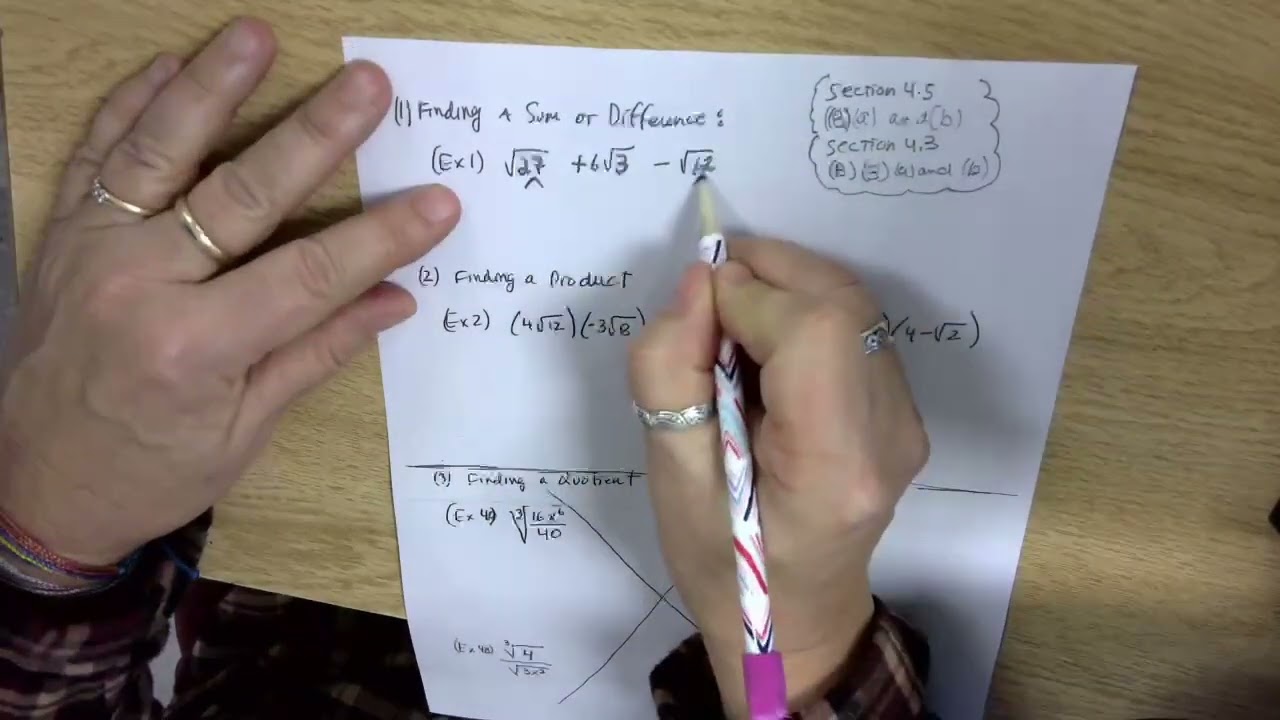 (1) Finding A Sum or Difference:
(Ex1) √27 +6√3 - √12
Section 4.5
(B)(a) and (b)
Section 4.3
(B)(3)(a) and (b)
(2) Finding a Product
(Ex2) (4√12)(-3√8) 4-√2)
(3) Finding a Quotient
(Ex ∛16x⁶/40
(Ex ∛4/√3x²